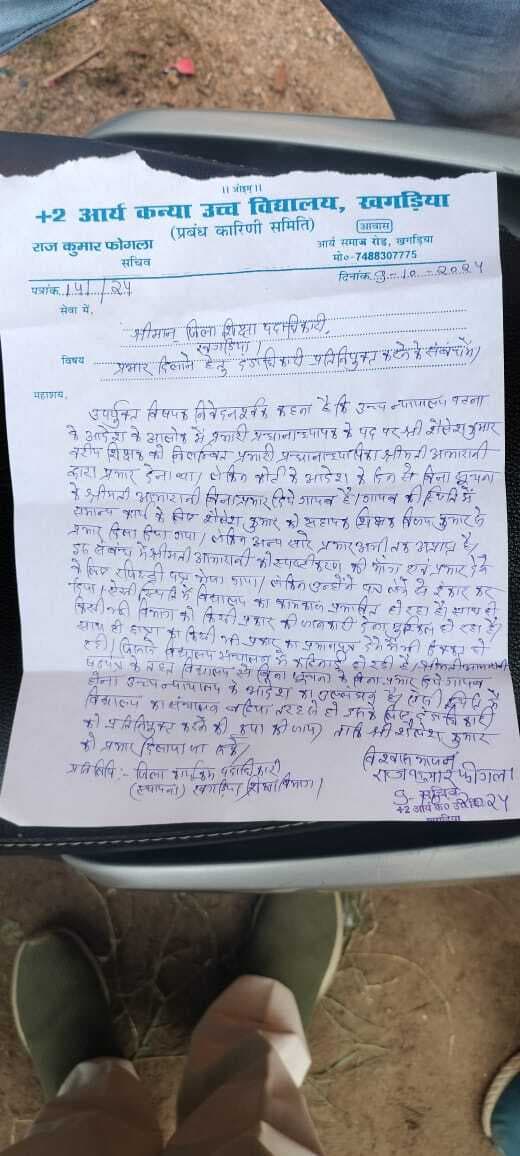 ।। ओ३म् ।।
+2 आर्य कन्या उच्च विद्यालय, खगड़िया
(प्रबंध कारिणी समिति)
आवास
राज कुमार फोगला
आर्य समाज रोड, खगड़िया
सचिव
मो०-7488307775
पत्रांक 141/24
दिनांक 3-10-2024
सेवा में,
श्रीमान् जिला शिक्षा पदाधिकारी,
खगड़िया।
विषय प्रभार दिलाने हेतु दंडाधिकारी प्रतिनियुक्त करने के संबंध में।
महाशय,
उपर्युक्त विषयक निवेदनपूर्वक कहना है कि उच्च न्यायालय पटना
के आदेश के आलोक में प्रभारी प्रधानाध्यापक के पद पर श्री शैलेश कुमार
वरीय शिक्षक को निलम्बित प्रभारी प्रधानाध्यापिका श्रीमती आशारानी
द्वारा प्रभार देना था। लेकिन कोर्ट के आदेश के दिन से बिना सूचना
के श्रीमती आशारानी बिना प्रभार दिये गायब है। गायब की स्थिति में
सामान्य कार्य के लिए शैलेश कुमार को सहायक शिक्षक विजय कुमार के
प्रभार दिला दिया गया। लेकिन अन्य सारे प्रभार अभी तक अप्राप्त है,
इस संबंध में श्रीमती आशारानी को स्पष्टीकरण की मांग एवं प्रभार देने
के लिए रजिस्ट्री पत्र भेजा गया। लेकिन उन्होंने पत्र लेने से इंकार कर
दिया। ऐसी स्थिति में विद्यालय का कामकाज प्रभावित हो रहा है। साथ ही
किसी भी विभाग को किसी प्रकार की जानकारी देना मुश्किल हो रहा है।
साथ ही छात्रा को किसी भी प्रकार का प्रमाणपत्र देने में भी दिक्कत हो
रही। जिससे विद्यालय संचालन में कठिनाई हो रही है। श्रीमती आशारानी
षड्यंत्र के तहत विद्यालय से बिना सूचना के बिना प्रभार दिये गायब
होना उच्च न्यायालय के आदेश का उल्लंघन है। ऐसी स्थिति में
विद्यालय का संचालन बढ़िया तरह से हो इसके लिए दंडाधिकारी
को प्रतिनियुक्त करने की कृपा की जाय। ताकि श्री शैलेश कुमार
को प्रभार दिलाया जा सके।
विश्वासभाजन
राज कुमार फोगला
प्रतिलिपि :- जिला कार्यक्रम पदाधिकारी
(स्थापना) खगड़िया (शिक्षा विभाग)
सचिव
+2 आर्य क० उ०
खगड़िया